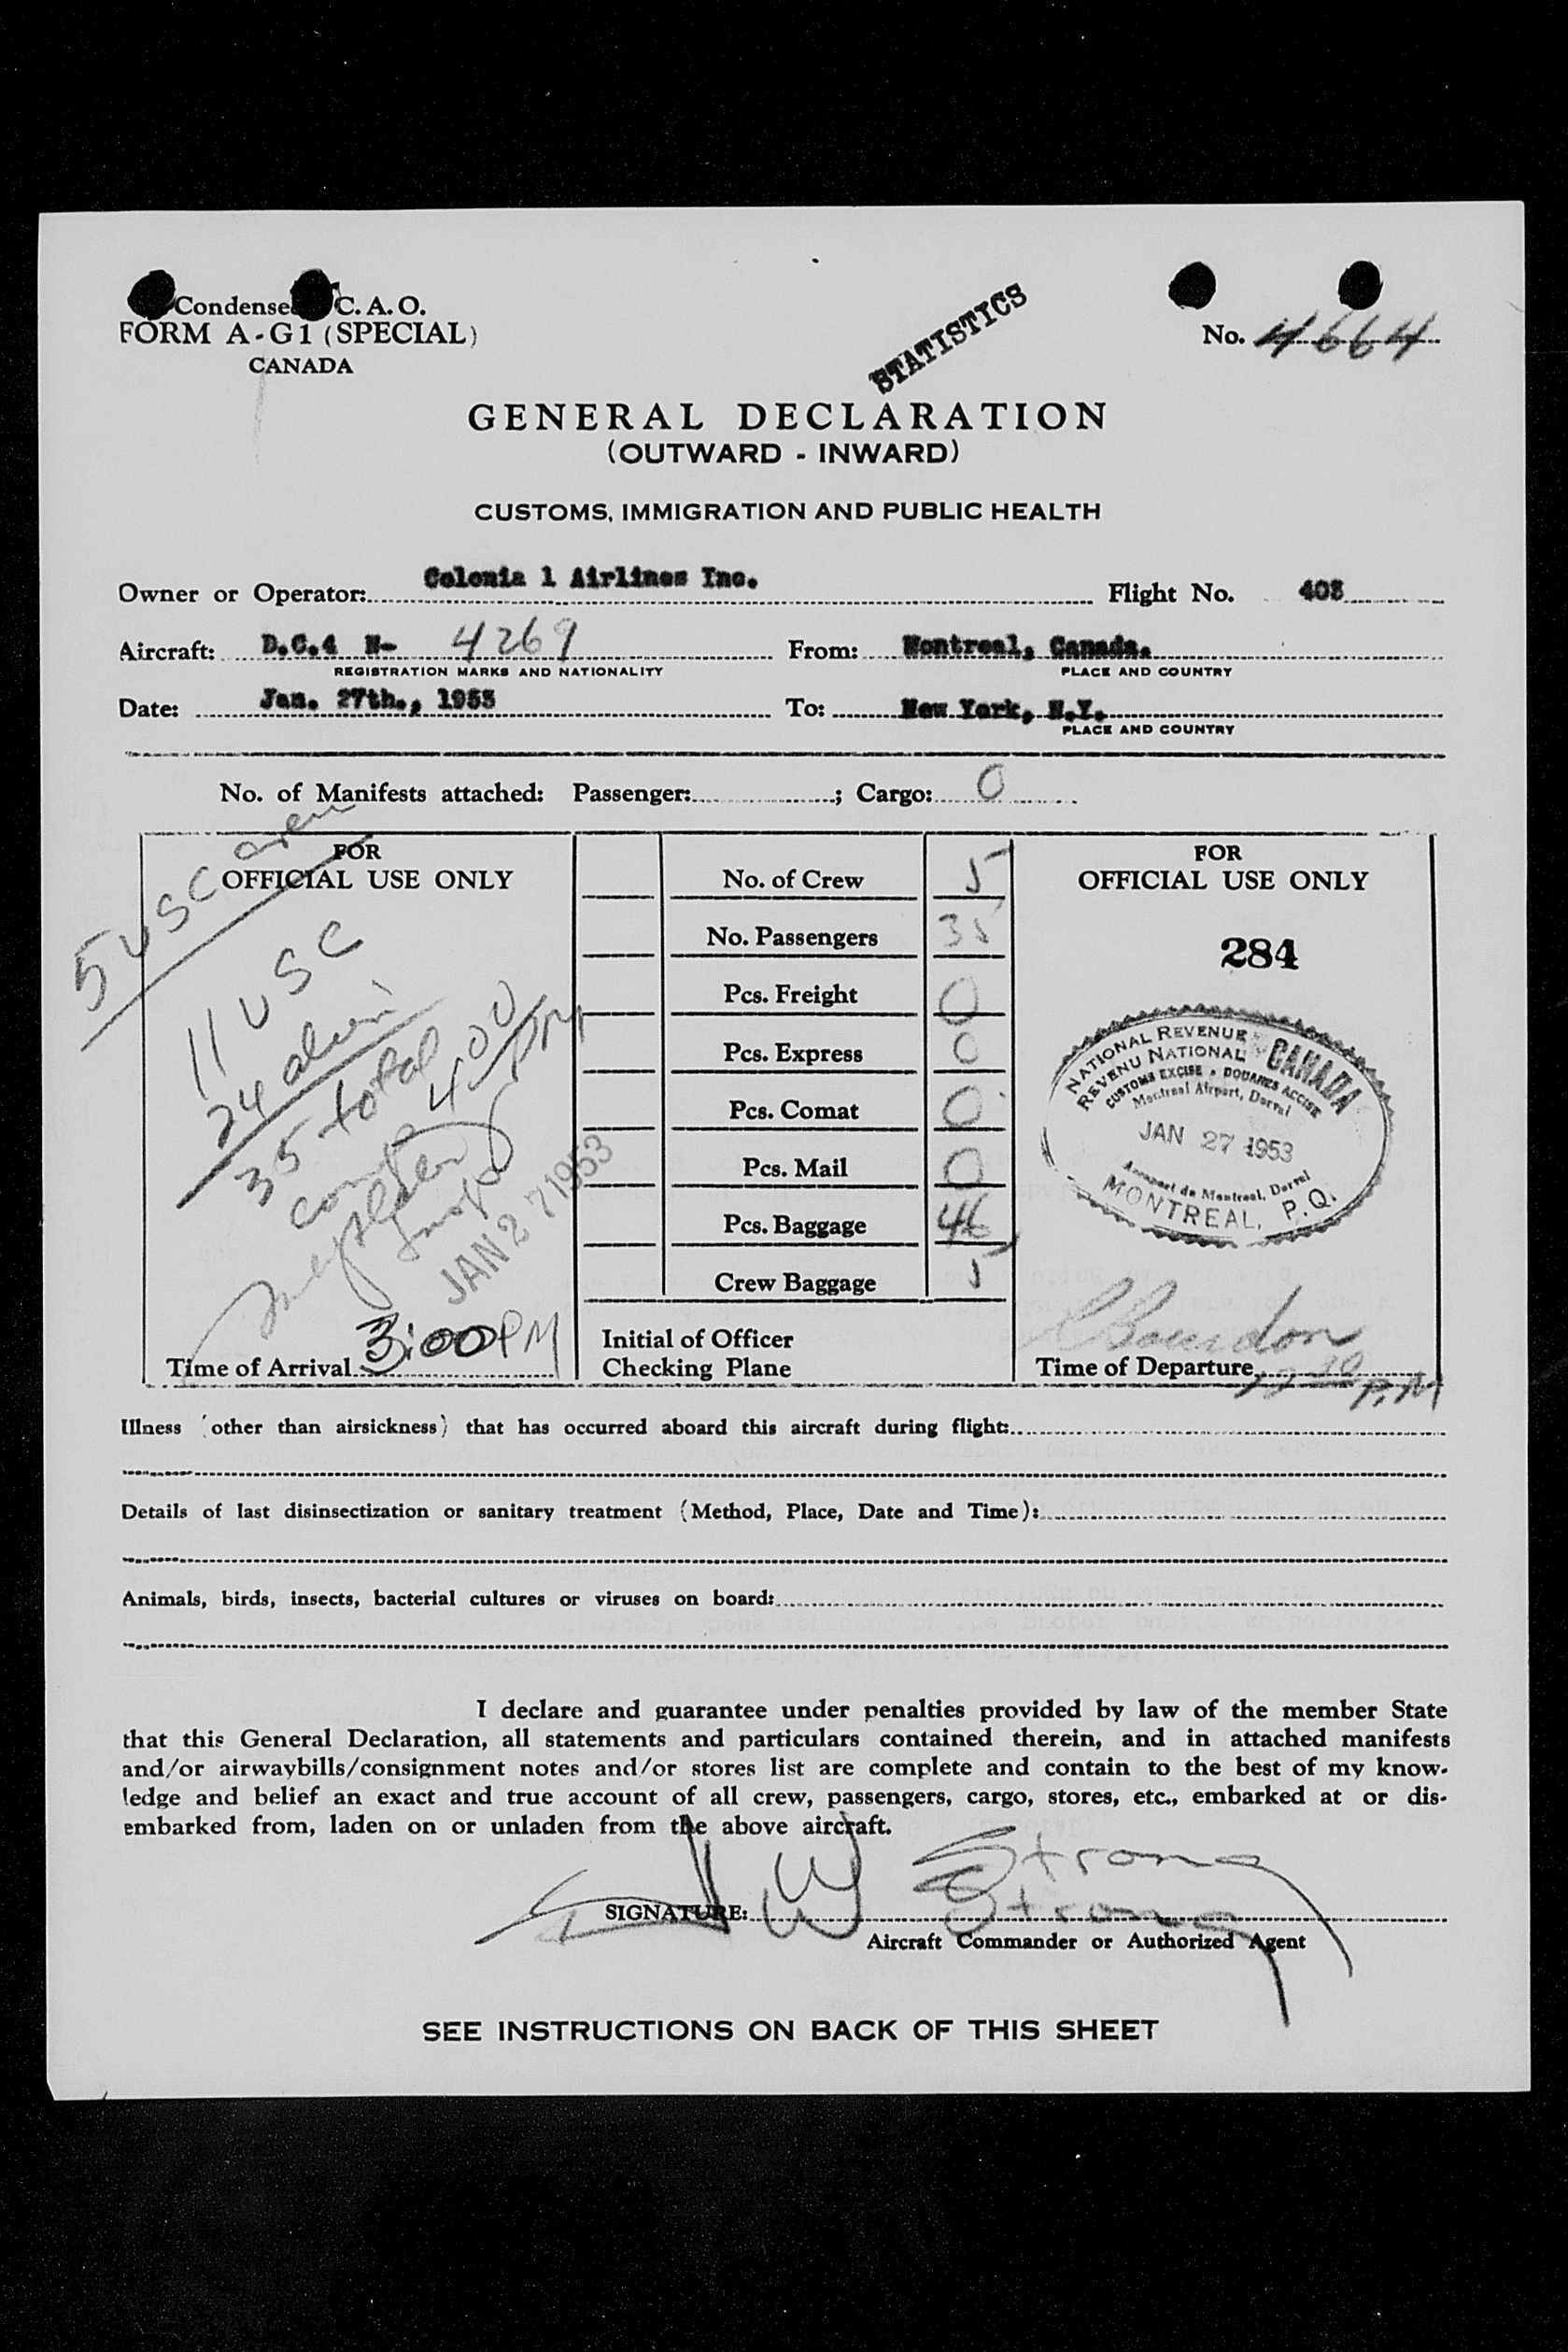 Condensed C. A. O.
FORM A-G1 (SPECIAL)
CANADA
STATISTICS
No. 4664
GENERAL DECLARATION
(OUTWARD - INWARD)
CUSTOMS, IMMIGRATION AND PUBLIC HEALTH
Owner or Operator: Colonia l Airlines Inc. Flight No. 403
Aircraft: D.C.4 N- 4269 From: Montreal, Canada.
REGISTRATION MARKS AND NATIONALITY PLACE AND COUNTRY
Date: Jan. 27th., 1953 To: New York, N.Y.
PLACE AND COUNTRY
No. of Manifests attached: Passenger: ; Cargo: 0
FOR
OFFICIAL USE ONLY
5 USC
11 USC
24
35 total
4 00 PM
JAN 27 1953
Time of Arrival 3:00 PM
No. of Crew 5
No. Passengers 35
Pcs. Freight 0
Pcs. Express 0
Pcs. Comat 0
Pcs. Mail 0
Pcs. Baggage 46
Crew Baggage 5
Initial of Officer
Checking Plane
FOR
OFFICIAL USE ONLY
284
NATIONAL REVENUE CANADA
REVENU NATIONAL
CUSTOMS EXCISE • DOUANES ACCISE
Montreal Airport, Dorval
JAN 27 1953
Aeroport de Montreal, Dorval
MONTREAL, P.Q.
Bourdon
Time of Departure P.M
Illness (other than airsickness) that has occurred aboard this aircraft during flight:
Details of last disinsectization or sanitary treatment (Method, Place, Date and Time):
Animals, birds, insects, bacterial cultures or viruses on board:
I declare and guarantee under penalties provided by law of the member State
that this General Declaration, all statements and particulars contained therein, and in attached manifests
and/or airwaybills/consignment notes and/or stores list are complete and contain to the best of my know-
ledge and belief an exact and true account of all crew, passengers, cargo, stores, etc., embarked at or dis-
embarked from, laden on or unladen from the above aircraft.
Strong
SIGNATURE: W Strong
Aircraft Commander or Authorized Agent
SEE INSTRUCTIONS ON BACK OF THIS SHEET